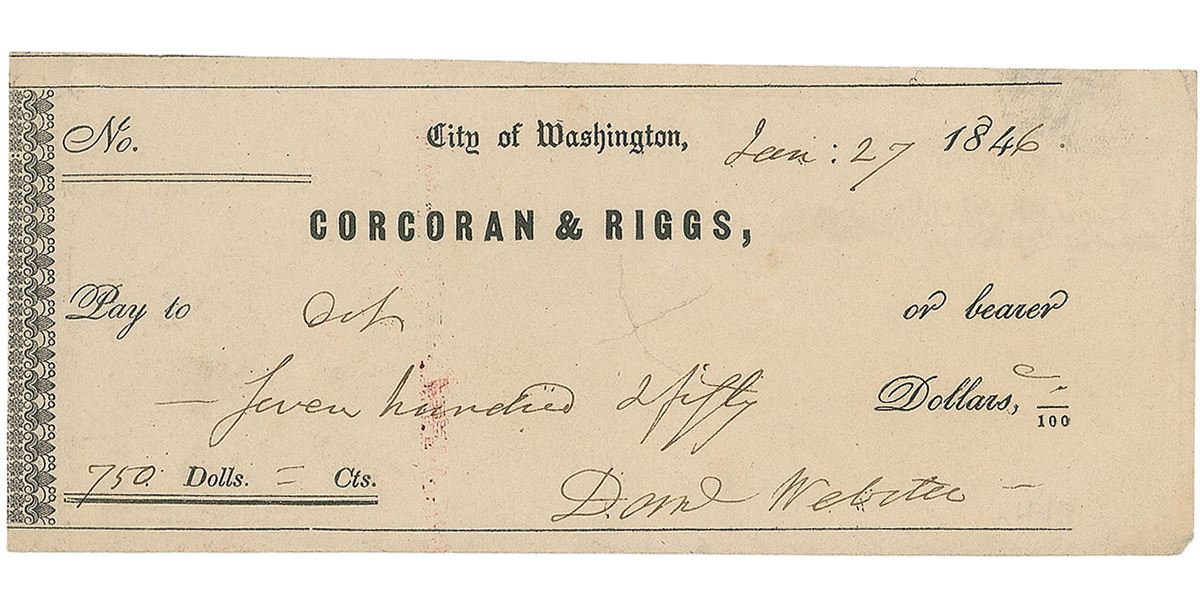 No. City of Washington, Jan: 27 1846.
CORCORAN & RIGGS,
Pay to or bearer
— Seven hundred & fifty Dollars, /100
750. Dolls. = Cts.
Danl Webster —